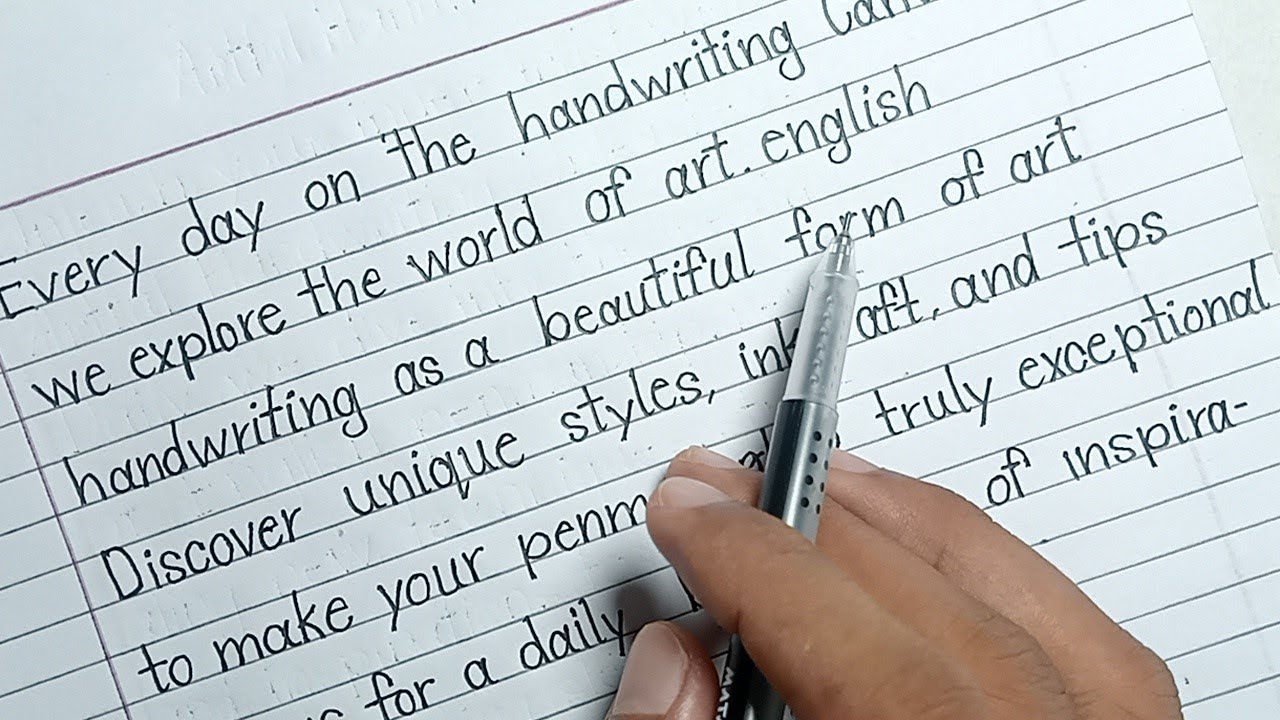 Every day on the handwriting
we explore the world of art. english
handwriting as a beautiful form of art
Discover unique styles, and tips
to make your truly exceptional
for a daily of inspira-